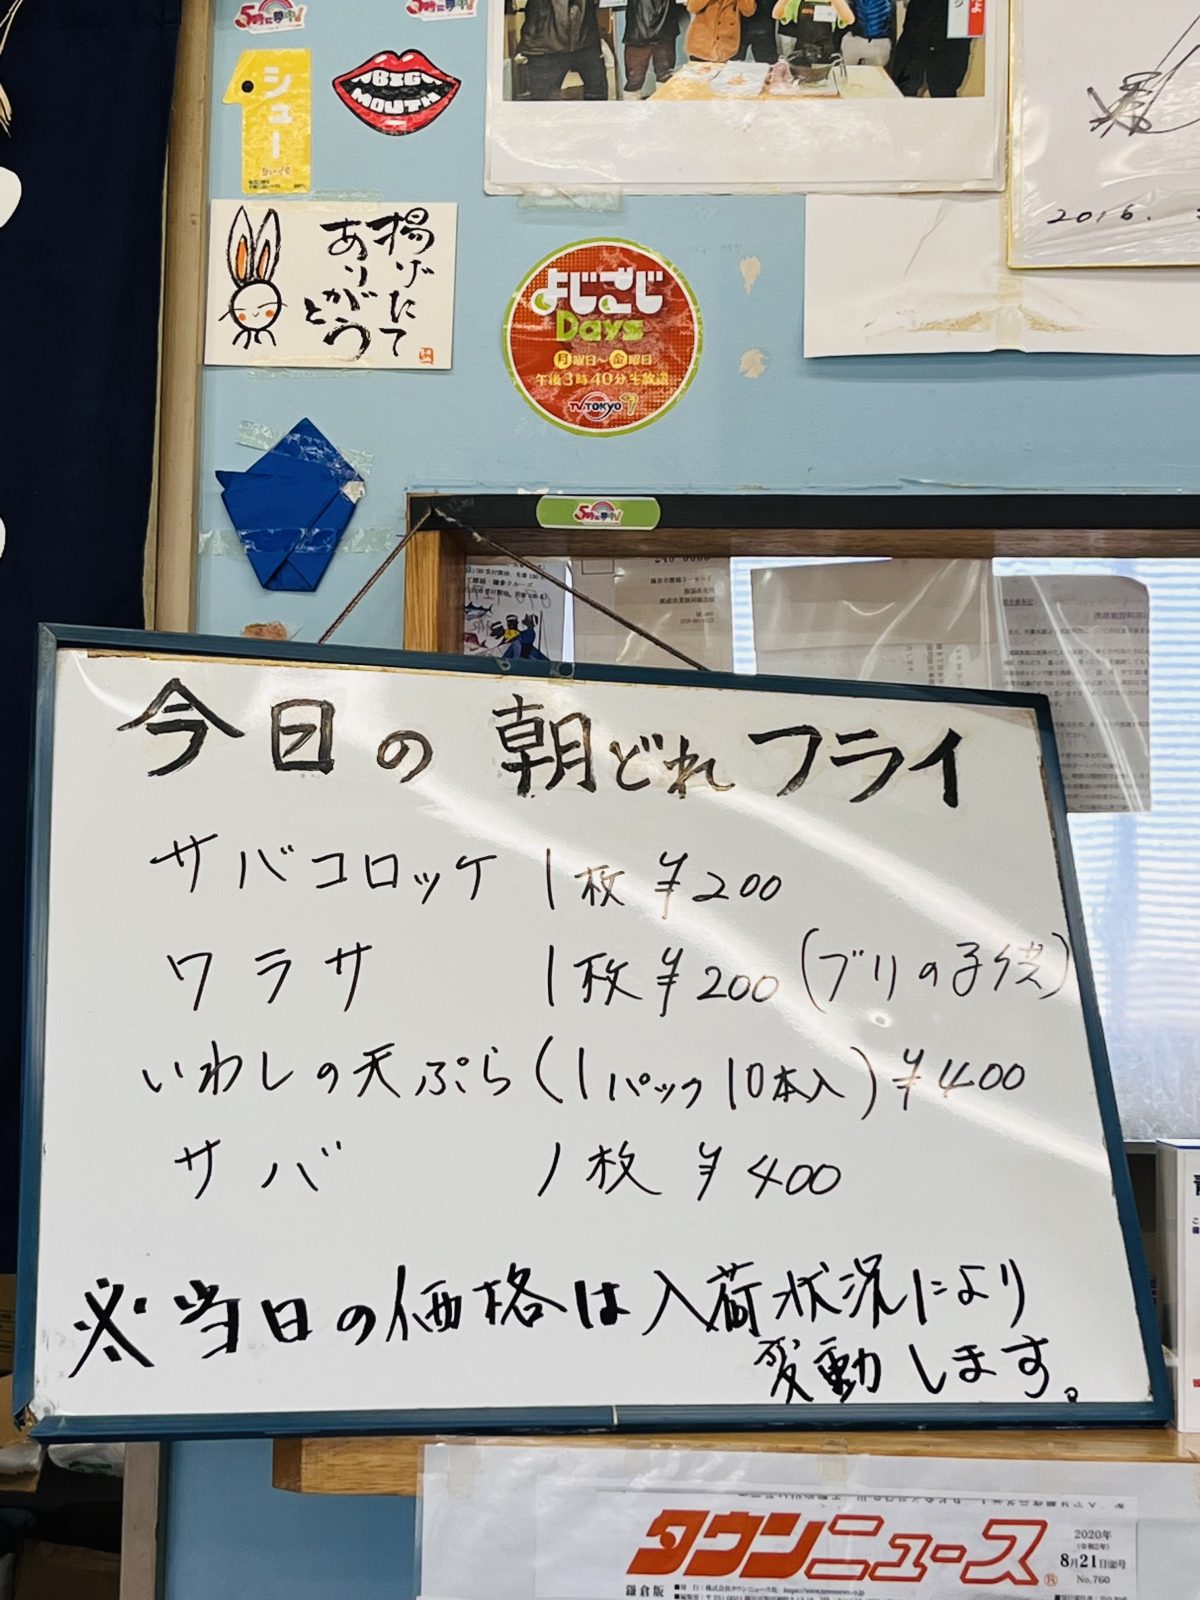 シュー
BIG
MOUTH
2016.
揚げたて
ありがとう
よじごじ
Days
月曜日~金曜日
午後3時40分生放送
TV TOKYO
今日の朝どれフライ
サバコロッケ 1枚 ¥200
ワラサ 1枚 ¥200 (ブリの子供)
いわしの天ぷら(1パック10本入) ¥400
サバ 1枚 ¥400
※当日の価格は入荷状況により
変動します。
タウンニュース®
2020年
8月21日㊎号
No.760
鎌倉版